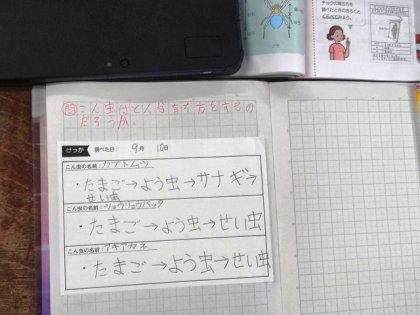 問こん虫はどんな育ち方をするの
だろうか。
けっか 調べた日: 9月 10日
こん虫の名前:カブトムシ
・たまご→よう虫→サナギ→
せい虫
こん虫の名前:ショウリョウバッタ
・たまご→よう虫→せい虫
こん虫の名前:アキアカネ
・たまご→よう虫→せい虫